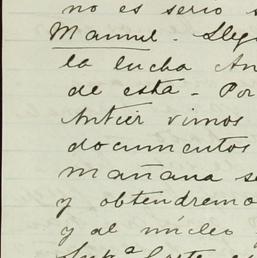 no es serio
Manuel. Lleg
la lucha An
de esta. Por
Antier vimos
documentos
mañana se
y obtendremo
y al núcleo
Sup.ª Corte